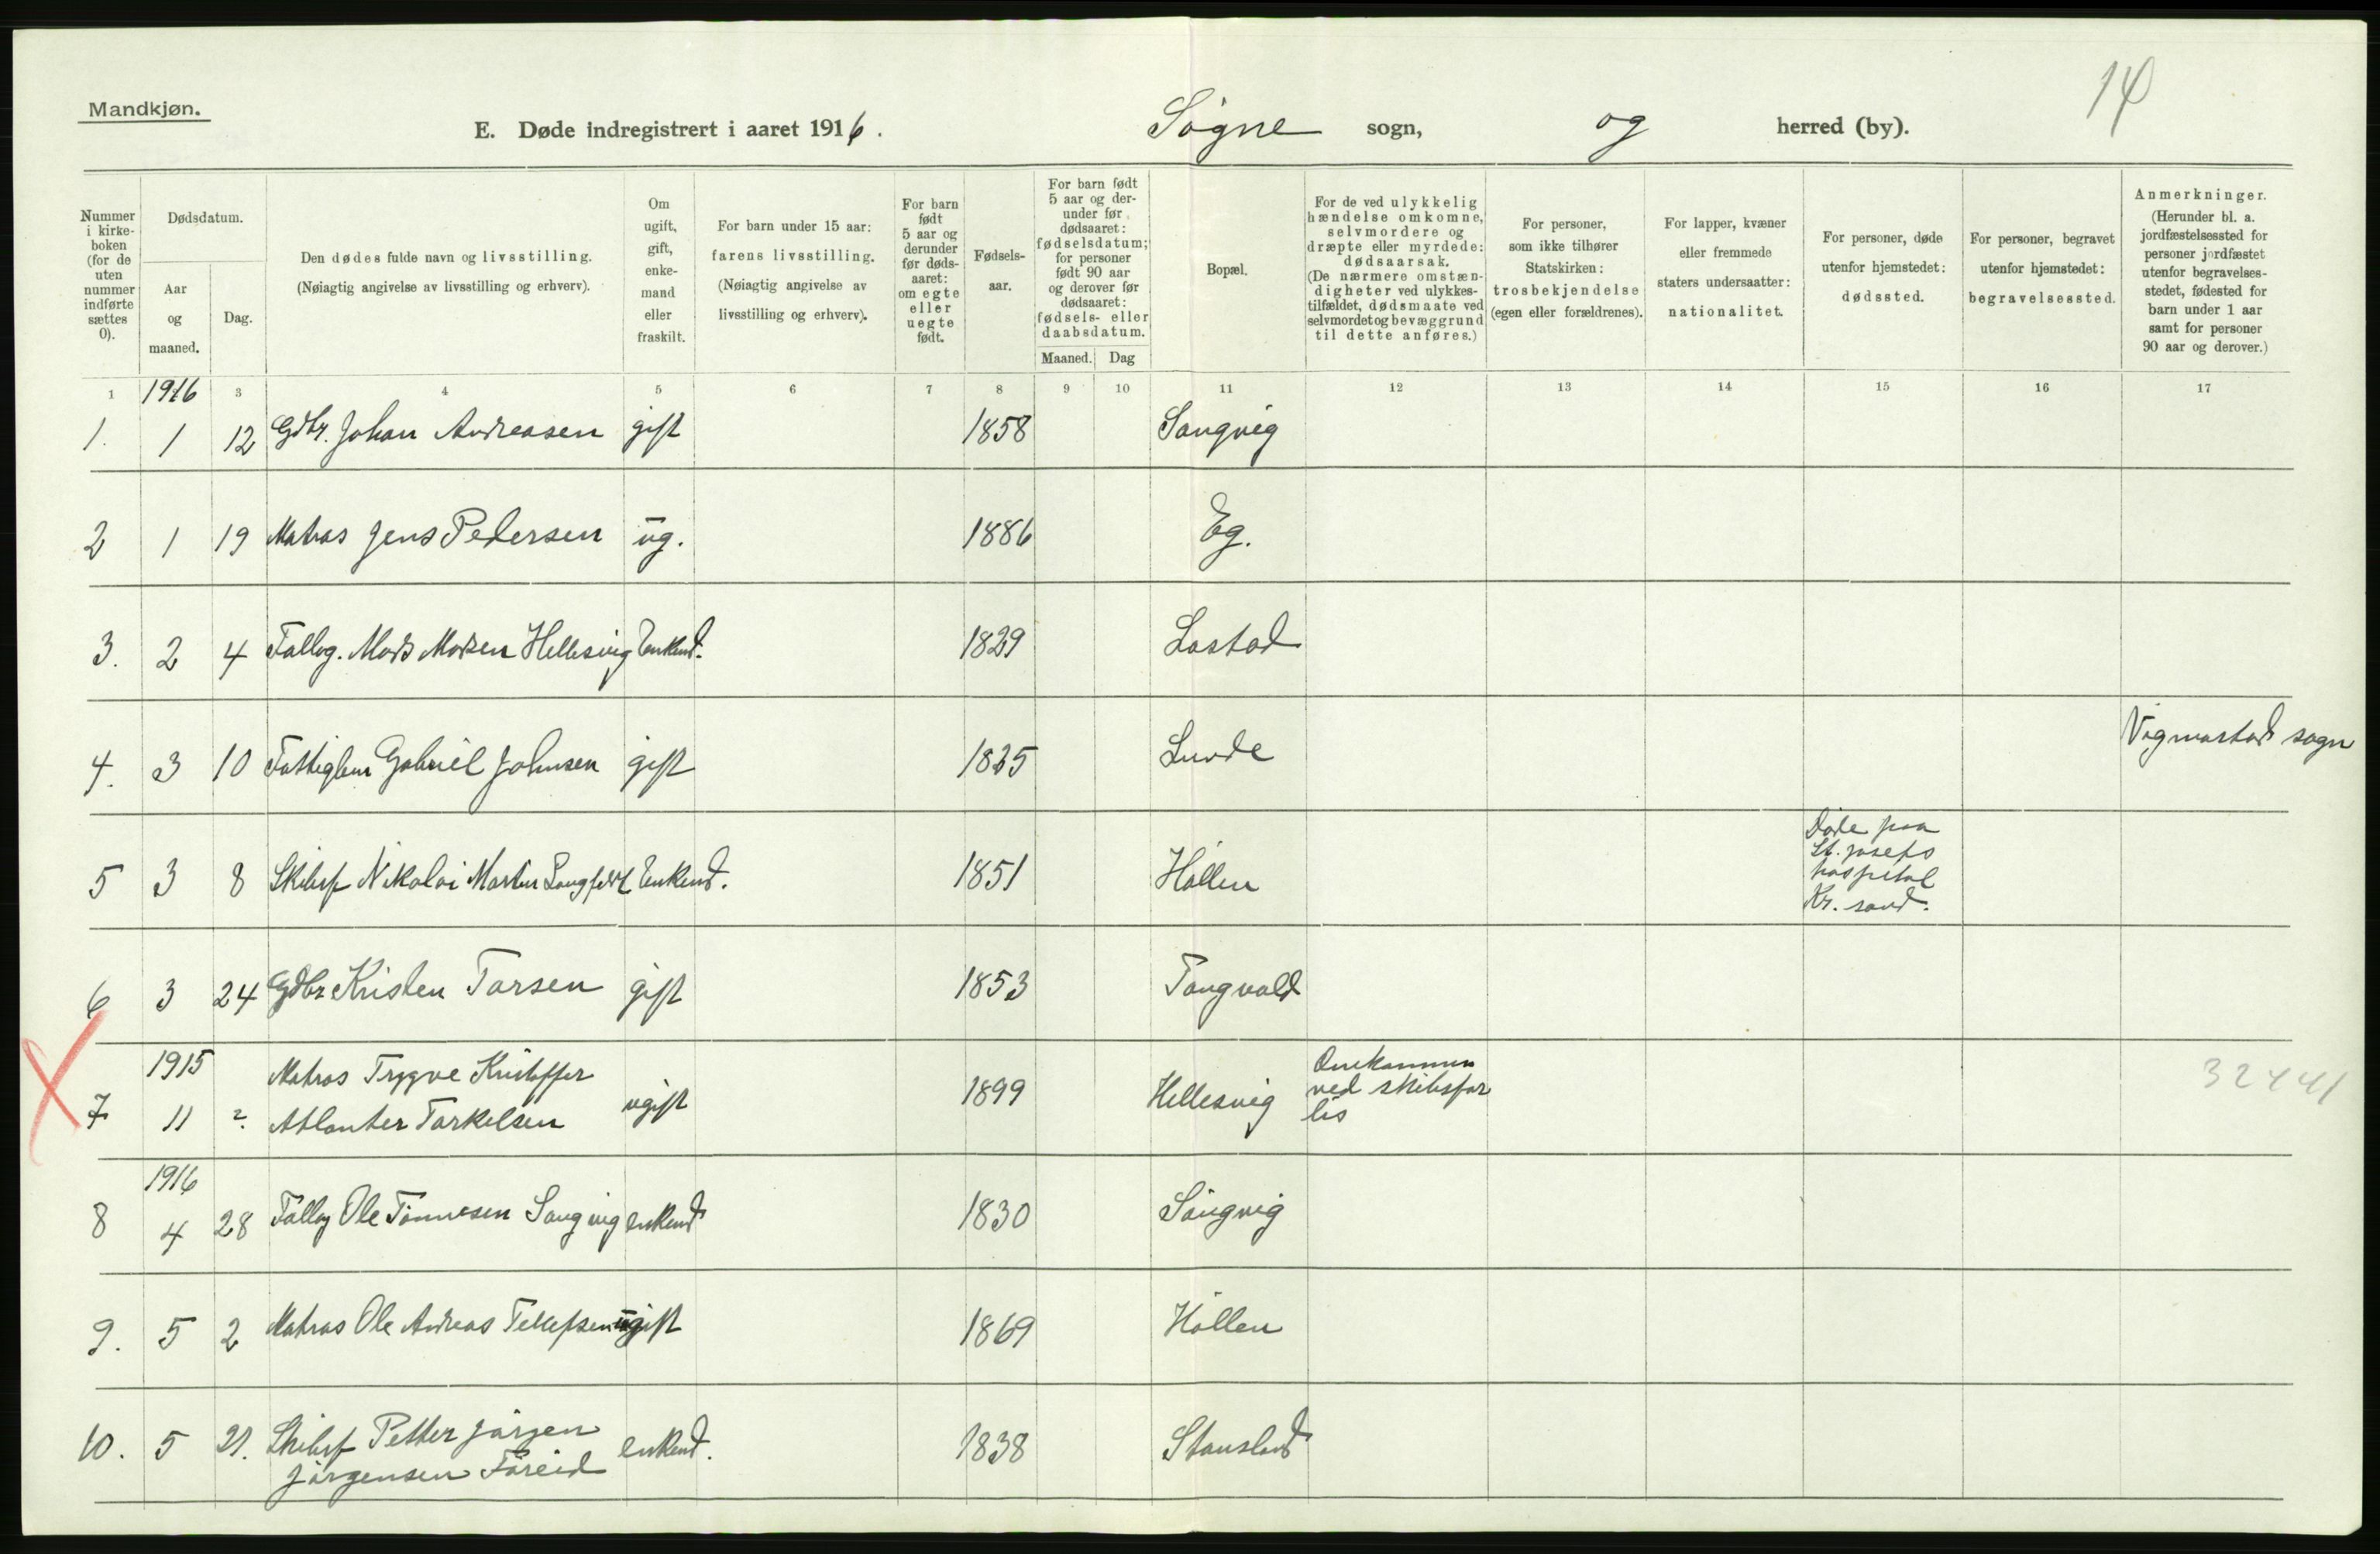 Mandkjøn.
14
E. Døde indregistrert i aaret 1916. Søgne sogn, og herred (by).
Nummer i kirkeboken (for de uten nummer indførte sættes 0).
Dødsdatum.
Aar og maaned.
Dag.
Den dødes fulde navn og livsstilling.
(Nøiagtig angivelse av livsstilling og erhverv).
Om ugift, gift, enkemand eller fraskilt.
For barn under 15 aar:
farens livsstilling.
(Nøiagtig angivelse av livsstilling og erhverv).
For barn født 5 aar og derunder før dødsaaret: om egte eller uegte født.
Fødselsaar.
For barn født 5 aar og derunder før dødsaaret: fødselsdatum; for personer født 90 aar og derover før dødsaaret: fødsels- eller daabsdatum.
Maaned. Dag
Bopæl.
For de ved ulykkelig hændelse omkomne, selvmordere og dræpte eller myrdede: dødsaarsak.
(De nærmere omstændigheter ved ulykkestilfældet, dødsmaate ved selvmordet og bevæggrund til dette anføres.)
For personer, som ikke tilhører Statskirken: trosbekjendelse (egen eller forældrenes).
For lapper, kvæner eller fremmede staters undersaatter: nationalitet.
For personer, døde utenfor hjemstedet: dødssted.
For personer, begravet utenfor hjemstedet: begravelsessted.
Anmerkninger.
(Herunder bl. a. jordfæstelsessted for personer jordfæstet utenfor begravelsesstedet, fødested for barn under 1 aar samt for personer 90 aar og derover.)
1 1916 3 4 5 6 7 8 9 10 11 12 13 14 15 16 17
1. 1 12 Gdbr. Johan Andreasen gift 1858 Songvig
2 1 19 Matros Jens Pedersen ug. 1886 Eg.
3. 2 4 Follog. Mads Madsen Hellesvig Enkemd. 1829 Lastad
4. 3 10 Fattiglem Gabriel Johnsen gift 1835 Lunde Vigmostad sogn
5 3 8 Skibsf Nikolai Martin Langfeldt Enkemd. 1851 Høllen Døde paa
St. Josefs
hospital
Kr. sand.
6 3 24 Gdbr Kristen Torsen gift 1853 Tangvald
1915
7 11 ? Matros Trygve Kristoffer
Atlanter Torkelsen ugift 1899 Hellesvig Omkommen
ved skibsfor
lis 32441
1916
8 4 28 Follog Ole Tønnesen Songvig enkemd 1830 Songvig
9. 5 2 Matros Ole Andreas Tellefsen ugift 1869 Høllen
10. 5 21. Skibsf Petter Jørgen
Jørgensen Toreid enkemd. 1838 Stausland